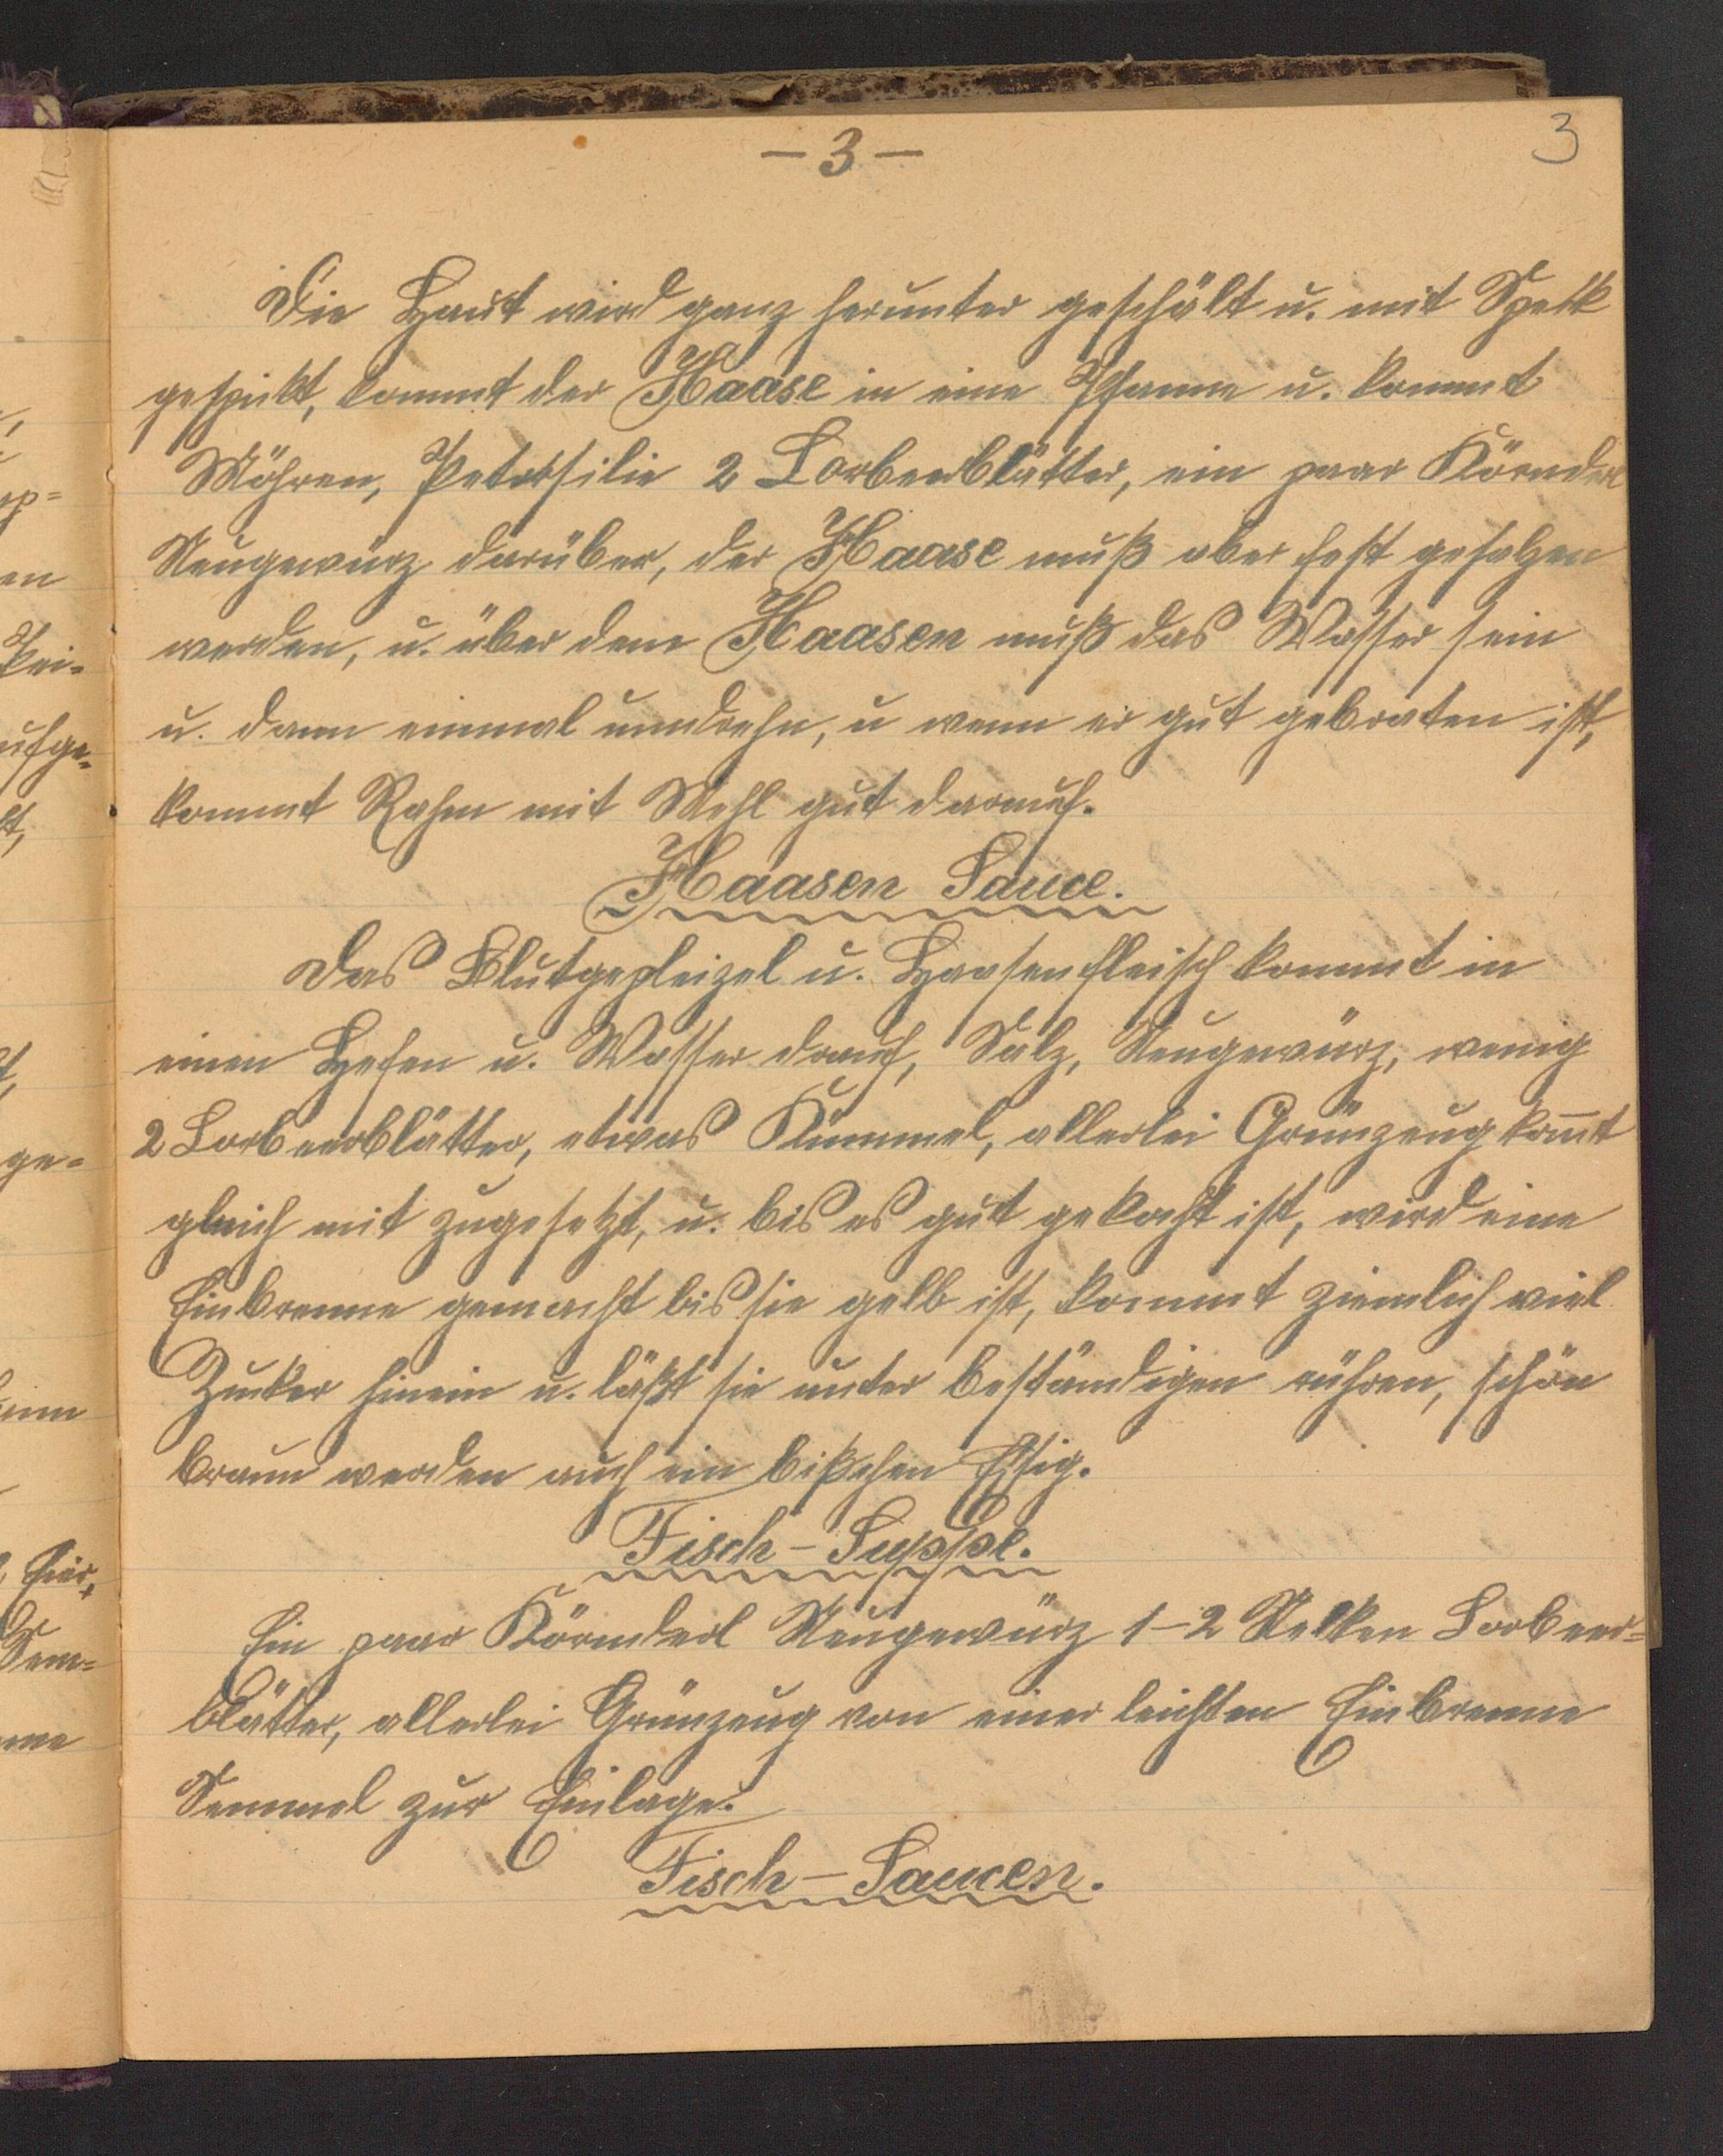 - 3 -
3
Die Haut wird ganz herunter geschält u. mit Speck
gespikt, kommt der Haase in eine Pfanne u. kommt
Möhren, Petersilie 2 Lorbeerblätter, ein paar Körnderl
Neugewürz darüber, der Haase muß aber fest gesalzen
werden, u. über dem Haasen muß das Wasser sein
u. dann einmal umdrehn, u wenn er gut gebraten ist,
kommt Rahm mit Mehl gut darauf.
Haasen Sauce.
Das u. Haasenfleisch kommt in
einen Hefen u. Wasser drauf, Salz, Neugewürz, wenig
2 Lorbeerblätter, etwas Kümmel, allerlei Grünzeug kom̅t
gleich mit zugesetzt, u. bis es gut gekocht ist, wird eine
Einbrenne gemacht bis sie gelb ist, kommt ziemlich viel
Zucker hinein u. läßt sie unter beständigen rühren, schön
braun werden auch ein bißchen Essig.
Fisch-Suppe.
Ein paar Körnderl Neugewürz 1-2 Nelken Lorbeer=
blätter, allerlei Grünzeug von einer leichten Einbrenne
Semmel zur Einlage.
Fisch-Saucen.